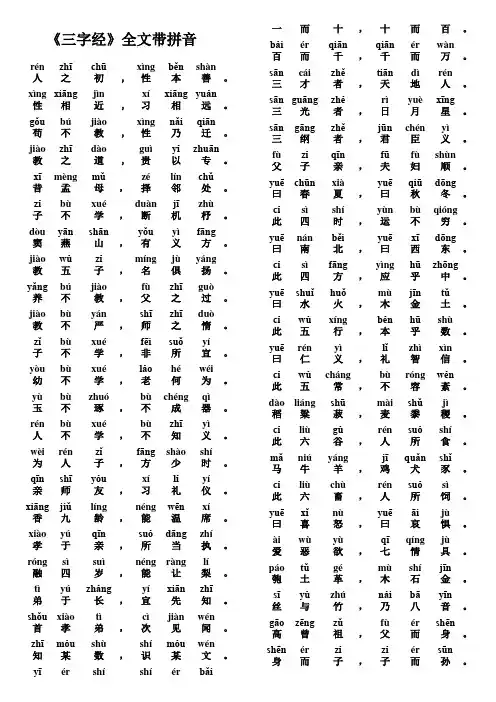 《三字经》全文带拼音
rén zhī chū xìng běn shàn
人 之 初 ， 性 本 善 。
xìng xiāng jìn xí xiāng yuǎn
性 相 近 ， 习 相 远 。
gǒu bú jiào xìng nǎi qiān
苟 不 教 ， 性 乃 迁 。
jiào zhī dào guì yǐ zhuān
教 之 道 ， 贵 以 专 。
xī mèng mǔ zé lín chǔ
昔 孟 母 ， 择 邻 处 。
zǐ bù xué duàn jī zhù
子 不 学 ， 断 机 杼 。
dòu yān shān yǒu yì fāng
窦 燕 山 ， 有 义 方 。
jiào wǔ zǐ míng jù yáng
教 五 子 ， 名 俱 扬 。
yǎng bú jiào fù zhī guò
养 不 教 ， 父 之 过 。
jiào bù yán shī zhī duò
教 不 严 ， 师 之 惰 。
zǐ bù xué fēi suǒ yí
子 不 学 ， 非 所 宜 。
yòu bù xué lǎo hé wéi
幼 不 学 ， 老 何 为 。
yù bù zhuó bù chéng qì
玉 不 琢 ， 不 成 器 。
rén bù xué bù zhī yì
人 不 学 ， 不 知 义 。
wèi rén zǐ fāng shào shí
为 人 子 ， 方 少 时 。
qīn shī yǒu xí lǐ yí
亲 师 友 ， 习 礼 仪 。
xiāng jiǔ líng néng wēn xí
香 九 龄 ， 能 温 席 。
xiào yú qīn suǒ dāng zhí
孝 于 亲 ， 所 当 执 。
róng sì suì néng ràng lí
融 四 岁 ， 能 让 梨 。
tì yú zhǎng yí xiān zhī
弟 于 长 ， 宜 先 知 。
shǒu xiào tì cì jiàn wén
首 孝 弟 ， 次 见 闻 。
zhī mǒu shù shí mǒu wén
知 某 数 ， 识 某 文 。
yī ér shí shí ér bǎi
一 而 十 ， 十 而 百 。
bǎi ér qiān qiān ér wàn
百 而 千 ， 千 而 万 。
sān cái zhě tiān dì rén
三 才 者 ， 天 地 人 。
sān guāng zhě rì yuè xīng
三 光 者 ， 日 月 星 。
sān gāng zhě jūn chén yì
三 纲 者 ， 君 臣 义 。
fù zǐ qīn fū fù shùn
父 子 亲 ， 夫 妇 顺 。
yuē chūn xià yuē qiū dōng
曰 春 夏 ， 曰 秋 冬 。
cǐ sì shí yùn bù qióng
此 四 时 ， 运 不 穷 。
yuē nán běi yuē xī dōng
曰 南 北 ， 曰 西 东 。
cǐ sì fāng yìng hū zhōng
此 四 方 ， 应 乎 中 。
yuē shuǐ huǒ mù jīn tǔ
曰 水 火 ， 木 金 土 。
cǐ wǔ xíng běn hū shù
此 五 行 ， 本 乎 数 。
yuē rén yì lǐ zhì xìn
曰 仁 义 ， 礼 智 信 。
cǐ wǔ cháng bù róng wěn
此 五 常 ， 不 容 紊 。
dào liáng shū mài shǔ jì
稻 粱 菽 ， 麦 黍 稷 。
cǐ liù gǔ rén suǒ shí
此 六 谷 ， 人 所 食 。
mǎ niú yáng jī quǎn shǐ
马 牛 羊 ， 鸡 犬 豕 。
cǐ liù chù rén suǒ sì
此 六 畜 ， 人 所 饲 。
yuē xǐ nù yuē āi jù
曰 喜 怒 ， 曰 哀 惧 。
ài wù yù qī qíng jù
爱 恶 欲 ， 七 情 具 。
páo tǔ gé mù shí jīn
匏 土 革 ， 木 石 金 。
sī yǔ zhú nǎi bā yīn
丝 与 竹 ， 乃 八 音 。
gāo zēng zǔ fù ér shēn
高 曾 祖 ， 父 而 身 。
shēn ér zǐ zǐ ér sūn
身 而 子 ， 子 而 孙 。